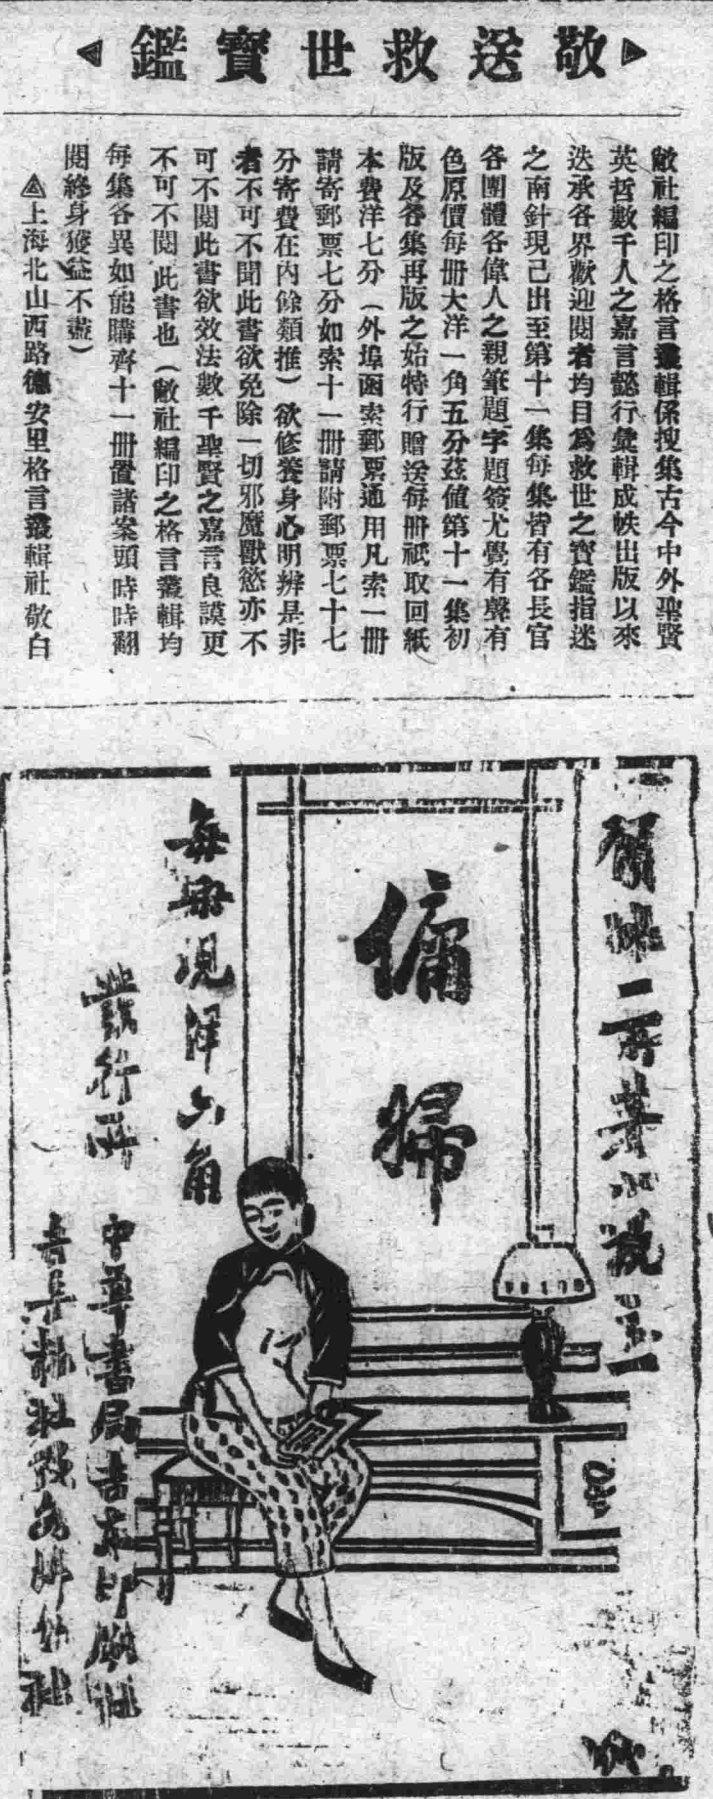 敬送救世寶鑑
敝社編印之格言叢輯係搜集古今中外聖賢
英哲數千人之嘉言懿行彙輯成帙出版以來
迭承各界歡迎閱者均目爲救世之寶鑑指迷
之南針現已出至第十一集每集皆有各長官
各團體各偉人之親筆題字題簽尤覺有聲有
色原價每册大洋一角五分茲值第十一集初
版及各集再版之始特行贈送每册祇取回紙
本費洋七分（外埠函索郵票通用凡索一册
請寄郵票七分如索十一册請附郵票七十七
分寄費在內餘類推）欲修養身心明辨是非
者不可不閱此書欲免除一切邪魔獸慾亦不
可不閱此書欲效法數千聖賢之嘉言良謨更
不可不閱此書也（敝社編印之格言叢輯均
每集各異如能購齊十一册置諸案頭時時翻
閱終身獲益不盡）
上海北山西路德安里格言叢輯社敬白
二 著小說之一
傭婦
每 現洋六角
發行所
中華書局吉 印刷社
吉長 社